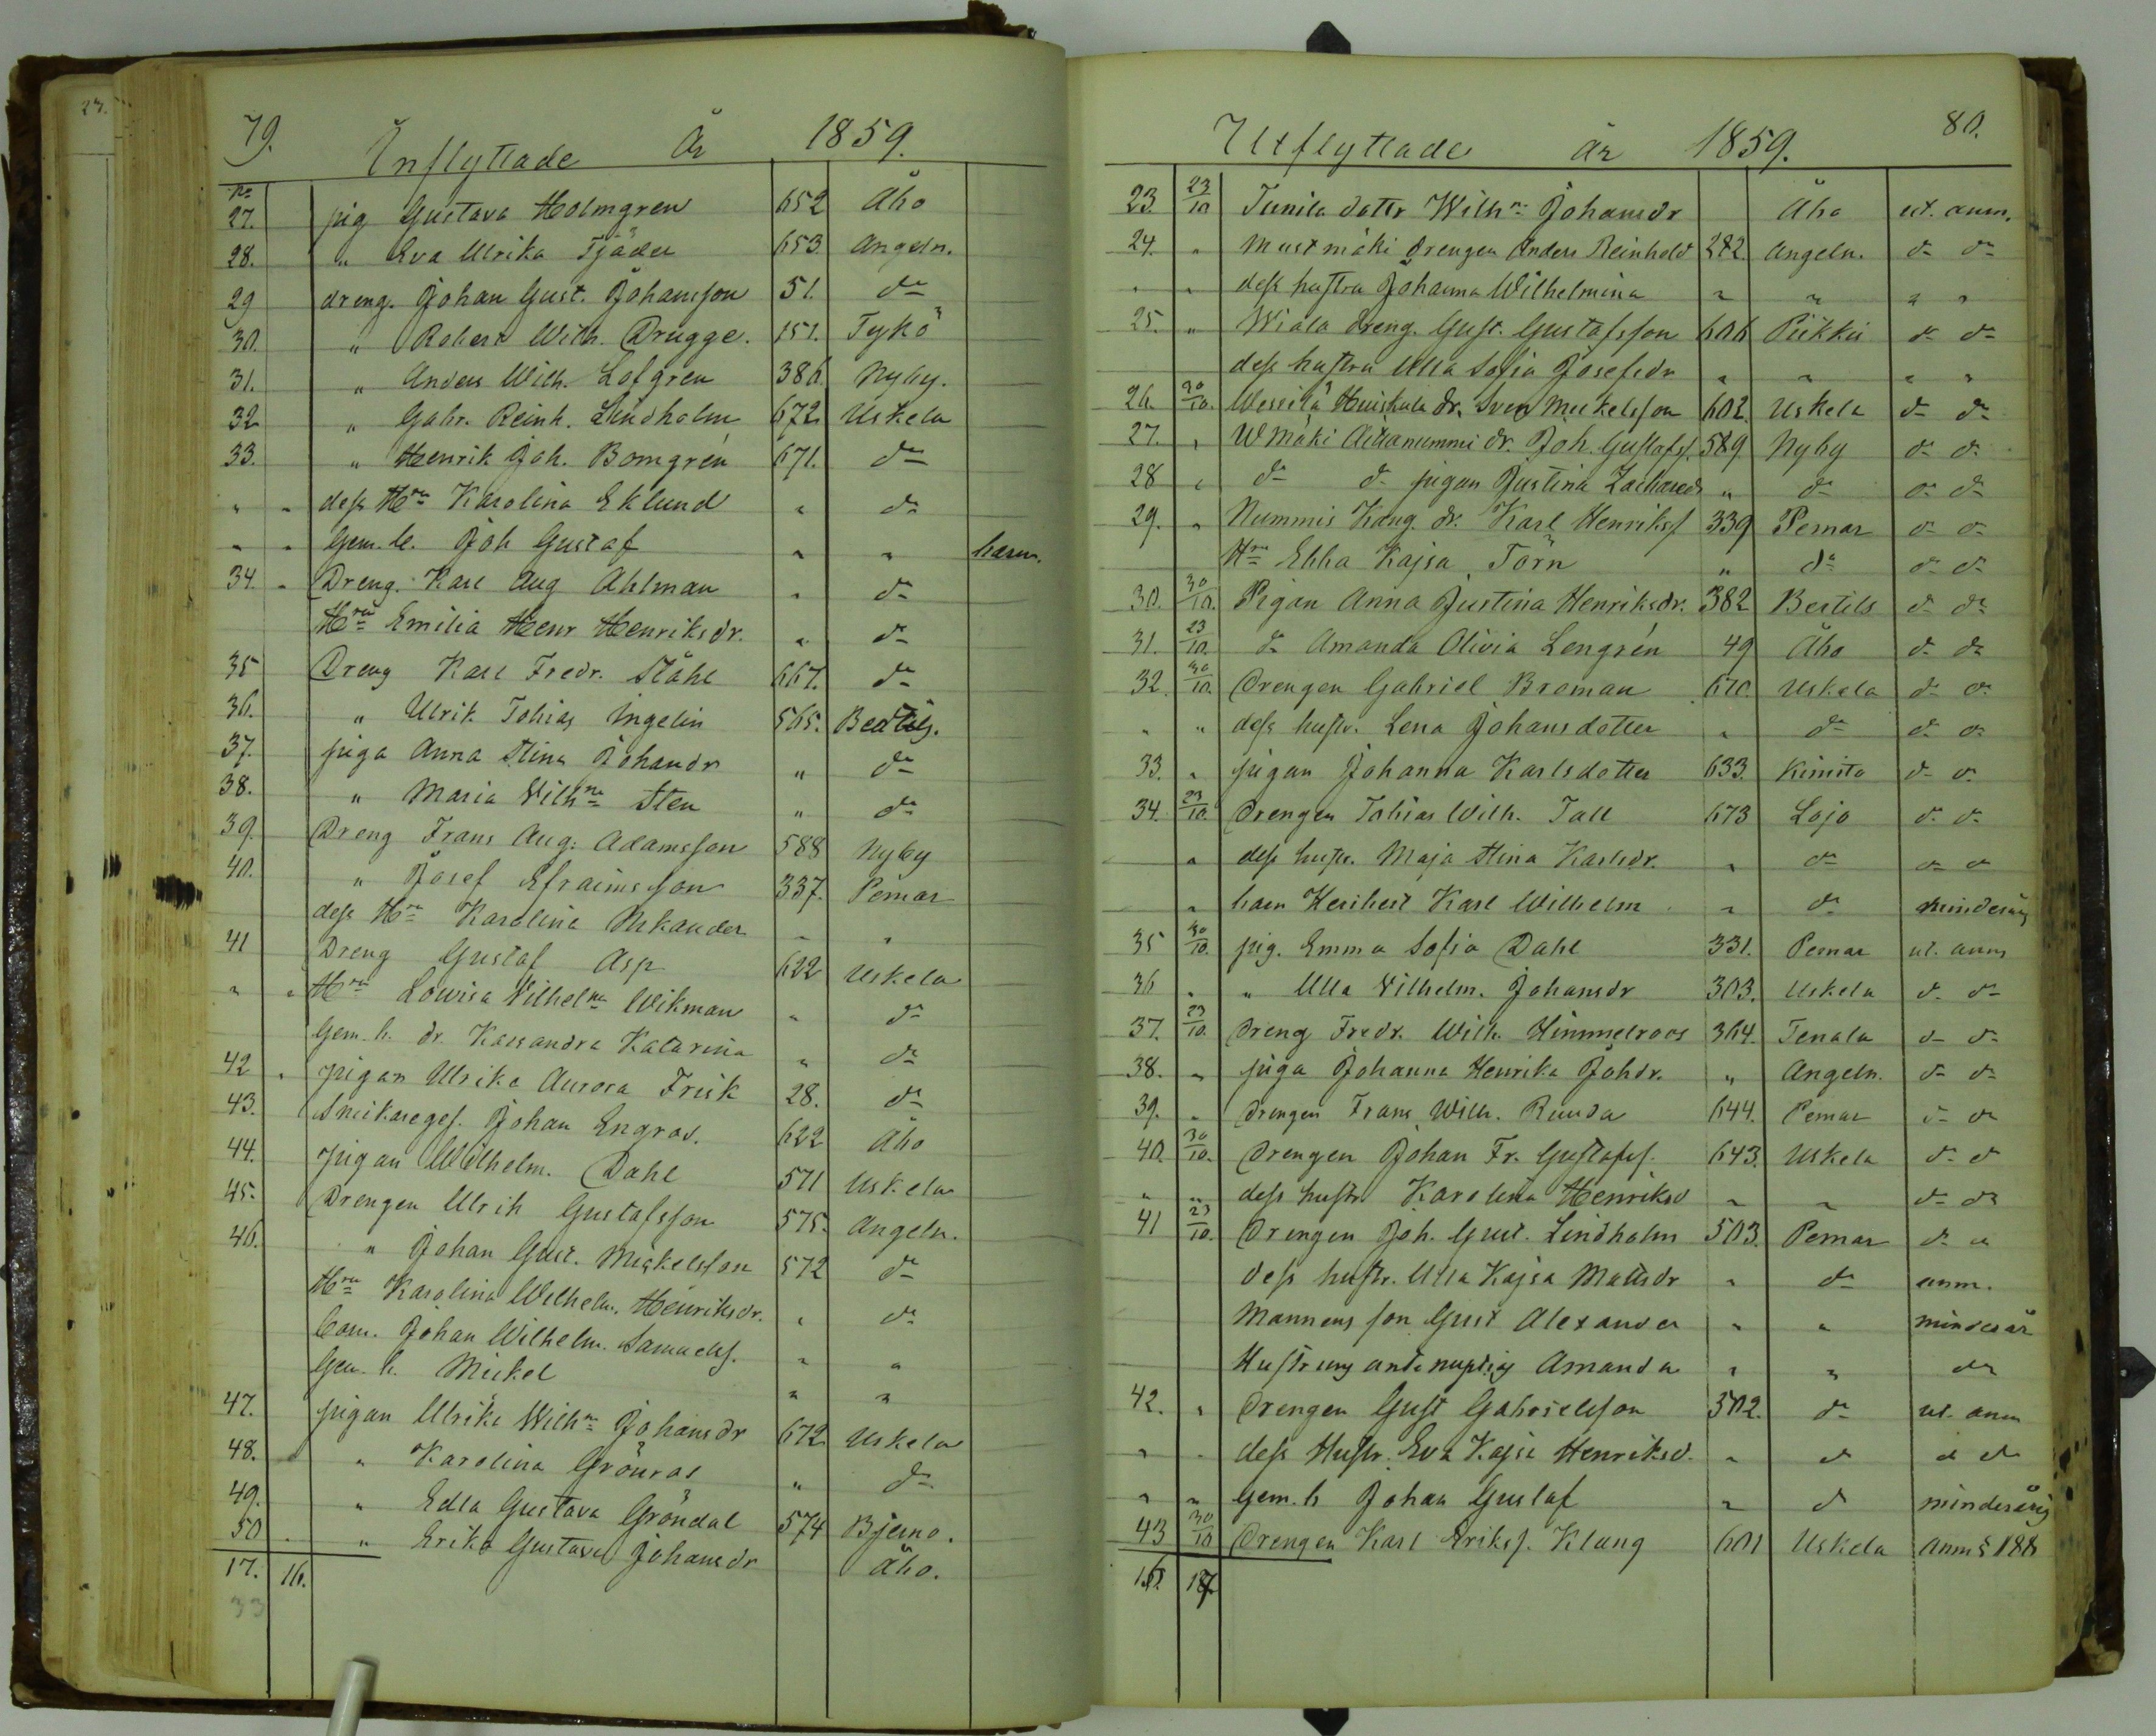 79. Inflyttade År 1859.
No
27. pig Gustava Holmgren 652 Åbo
28. " Eva Ulrika Tjäder 653. Angeln.
29 dreng. Johan Gust. Johansson 51. do
30. " Robert Wilh. Drugge. 151. Tykö
31. " Anders Wilh. Löfgren 386. Nyby.
32 " Gabr. Reinh. Lindholm 672 Uskela
33. " Henrik Joh. Bomgrén 671. do
" " dess Hru Karolina Eklund " do
" " Gem. b. Joh Gustaf " " barn.
34. " Dreng. Karl Aug Ahlman " do
Hru Emilia Henr Henriksdr. " do
35 Dreng Karl Fredr. Ståhl 667. do
36. " Ulrik Tobias Ingelin 565. Bertils.
37. piga Anna Stina Johansdr " do
38. " Maria Vilhna Sten " do
39. Dreng Frans Aug. Adamsson 588 Nyby
40. " Josef Efraimsson 337. Pemar
dess Hru Karolina Nikander " "
41 Dreng Gustaf Asp 622 Uskela
" " Hru Lowisa Vilhelma Wikman " do
Gem. b. dr. Kassandra Katarina " do
42 " pigan Ulrika Aurora Frisk 28. do
43. Snickareges. Johan Engros. 622 Åbo
44. pigan Wilhelm. Dahl 571 Uskela
45. Drengen Ulrik Gustafsson 575. Angeln.
46. " Johan Gust. Mickelsson 572 do
Hru Karolina Wilhelm. Henriksdr. " do
Johan Wilhelm. Samuels. " "
Gem. b. Mickel " "
47. pigan Ulrika Wilhna Johansdr 672 Uskela
48. " Karolina Grönros " do
49. " Edla Gustava Gröndal 574 Bjerno.
50 " Erika Gustava Johansdr Åbo.
17. 16.
33
Utflyttade år 1859. 80.
23. 23/10 Tunila dotter Wilhna Johansdr Åbo ut. anm.
24. " Mustmäki drengen Anders Reinhold 282. Angeln. do do
" " dess hustru Johanna Wilhelmina " " " "
25. " Wiala dreng. Gust. Gustafsson 606 Piikkis do do
dess hustru Ulla Sofia Josefsdr " " " "
26. 30/10. Huiskula dr. Sven Mickelsson 602. Uskela do do
27. " Wmäki dr. Joh. Gustafs. 589. Nyby do do
28 " do do pigan Justina Zachariedr " do do do
29. " Nummis Kaug. dr. Karl Henriks. 339 Pemar do do
Hru Ebba Kajsa Törn " do do do
30. 30/10. Pigan Anna Justina Henriksdr. 382 Bertils do do
31. 23/10. do Amanda Olivia Lengrén 49 Åbo do do
32. 30/10. Drengen Gabriel Broman 670. Uskela do do
" " dess hustr. Lena Johansdotter " do do do
33. " pigan Johanna Karlsdotter 633. Kimito do do
34. 23/10. Drengen Tobias Wilh. Tall 673 Lojo do do
" dess hustr. Maja Stina Karlsdr. " do do do
" barn Heribert Karl Wilhelm " do minderårig
35 30/10. pig. Emma Sofia Dahl 331. Pemar ut. anm
36 " " Ulla Vilhelm. Johansdr 303. Uskela do do
37. 23/10. Dreng Fredr. Wilh. Himmelroos 364. Tenala do do
38. " piga Johanna Henrika Johdr. " Angeln. do do
39. " Drengen Frans Wilh. Runda 644. Pemar do do
40. 30/10. Drengen Johan Fr. Gustafss. 643. Uskela do do
" " dess hustr. Karolina Henriksd " " do do
41 23/10. Drengen Joh. Gust. Lindholm 503. Pemar do "
dess hustr. Ulla Kajsa Mattsdr " do anm.
Mannens son Gust Alexander " " minderår
Hustruns antenuptis Amanda " " do
42. " Drengen Gust Gabrielsson 502. do ut. anm
" " dess Hustr. Eva Kajsa Henriksd. " do do do
" " Gem. b Johan Gustaf " do minderårig
43 30/10 Drengen Karl Eriks. Klang 601 Uskela anm § 188
16. 17.